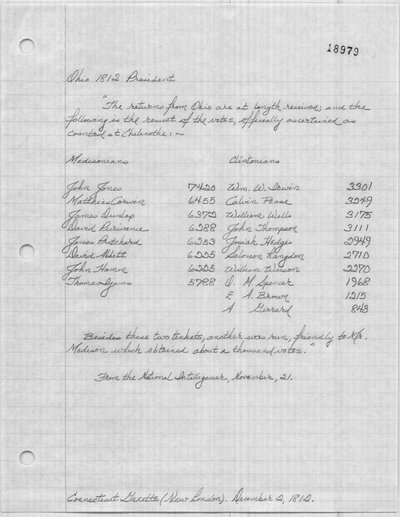 18973
Ohio 1812 President
"The returns from Ohio are at length received; and the
following is the result of the votes, officially ascertained as
counted at Chilicothe:~
Madisonians Clintonians
John Jones 7420 Wm. W. Irwin 3301
Matthias Corwin 6455 Calvin Pease 3249
James Dunlap 6372 William Wells 3175
David Purviance 6288 John Thompson 3111
James Pritchard 6253 Josiah Hedges 2949
David Abbott 6225 Solomon Langdon 2710
John Hamm 6225 William Wilson 2270
Thomas Ijams 5788 O. M. Spencer 1968
E A. Brown 1215
A Gerrard 843
Besides these two tickets, another was run, friendly to Mr.
Madison which obtained about a thousand votes."
From the National Intelligencer, November, 21.
Connecticut Gazette (New London). December 2, 1812.